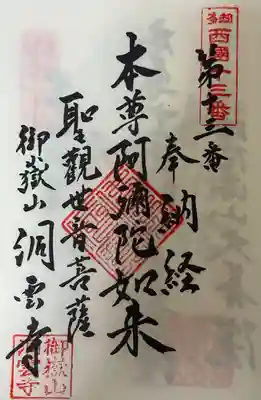 西國十三番
第十三番
奉納経
本尊阿彌陀如来
聖觀世音菩薩
御嶽山 洞雲寺
御嶽山
洞雲寺